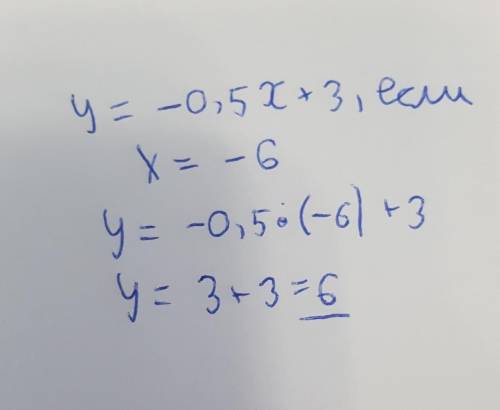 y = -0,5x + 3, если
x = -6
y = -0,5·(-6) + 3
y = 3 + 3 = 6